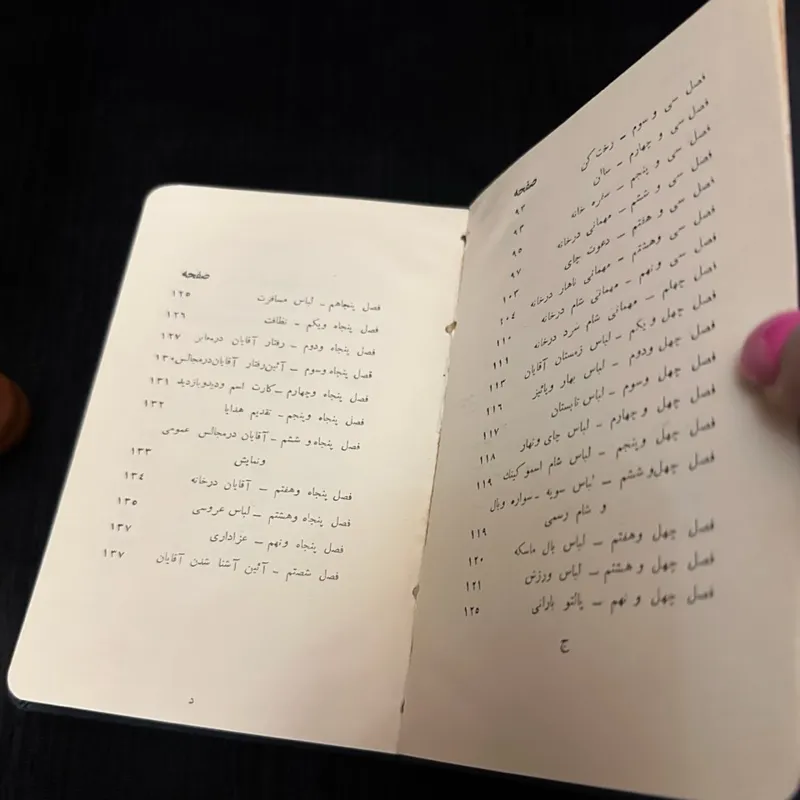 صفحه
فصل سی و سوم ـ رخت کن ۹۲
فصل سی و چهارم ـ سالن ۹۳
فصل سی و پنجم ـ سفره خانه ۹۵
فصل سی و ششم ـ مهمانی درخانه ۹۷
فصل سی و هفتم ـ دعوت چای ۱۰۳
فصل سی وهشتم ـ مهمانی ناهار درخانه ۱۰۴
فصل سی و نهم ـ مهمانی شام درخانه ۱۱۰
فصل چهلم ـ مهمانی شام سرد درخانه ۱۱۱
فصل چهل و یکم ـ لباس زمستان آقایان ۱۱۳
فصل چهل ودوم ـ لباس بهار وپائیز ۱۱۶
فصل چهل وسوم ـ لباس تابستان ۱۱۷
فصل چهل و چهارم ـ لباس چای ونهار ۱۱۸
فصل چهل وپنجم ـ لباس شام اسموکینك ۱۱۹
فصل چهل‌و ششم ـ لباس سوپه ـ سواره وبال
و شام رسمی ۱۱۹
فصل چهل وهفتم ـ لباس بال ماسکه ۱۲۰
فصل چهل و هشتم ـ لباس ورزش ۱۲۱
فصل چهل و نهم ـ پالتو بارانی ۱۲۵
ج
صفحه
فصل پنجاهم ـ لباس مسافرت ۱۲۵
فصل پنجاه ویکم ـ نظافت ۱۲۶
فصل پنجاه ودوم ـ رفتار آقایان درمعابر ۱۲۷
فصل پنجاه وسوم ـ آئین‌رفتار آقایان‌درمجالس ۱۳۰
فصل پنجاه وچهارم ـ کارت اسم ودیدوبازدید ۱۳۱
فصل پنجاه وپنجم ـ تقدیم هدایا ۱۳۲
فصل پنجاه و ششم ـ آقایان درمجالس عمومی
ونمایش ۱۳۳
فصل پنجاه وهفتم ـ آقایان درخانه ۱۳۴
فصل پنجاه وهشتم ـ لباس عروسی ۱۳۵
فصل پنجاه ونهم ـ عزاداری ۱۳۷
فصل شصتم ـ آئین آشنا شدن آقایان ۱۳۷
د